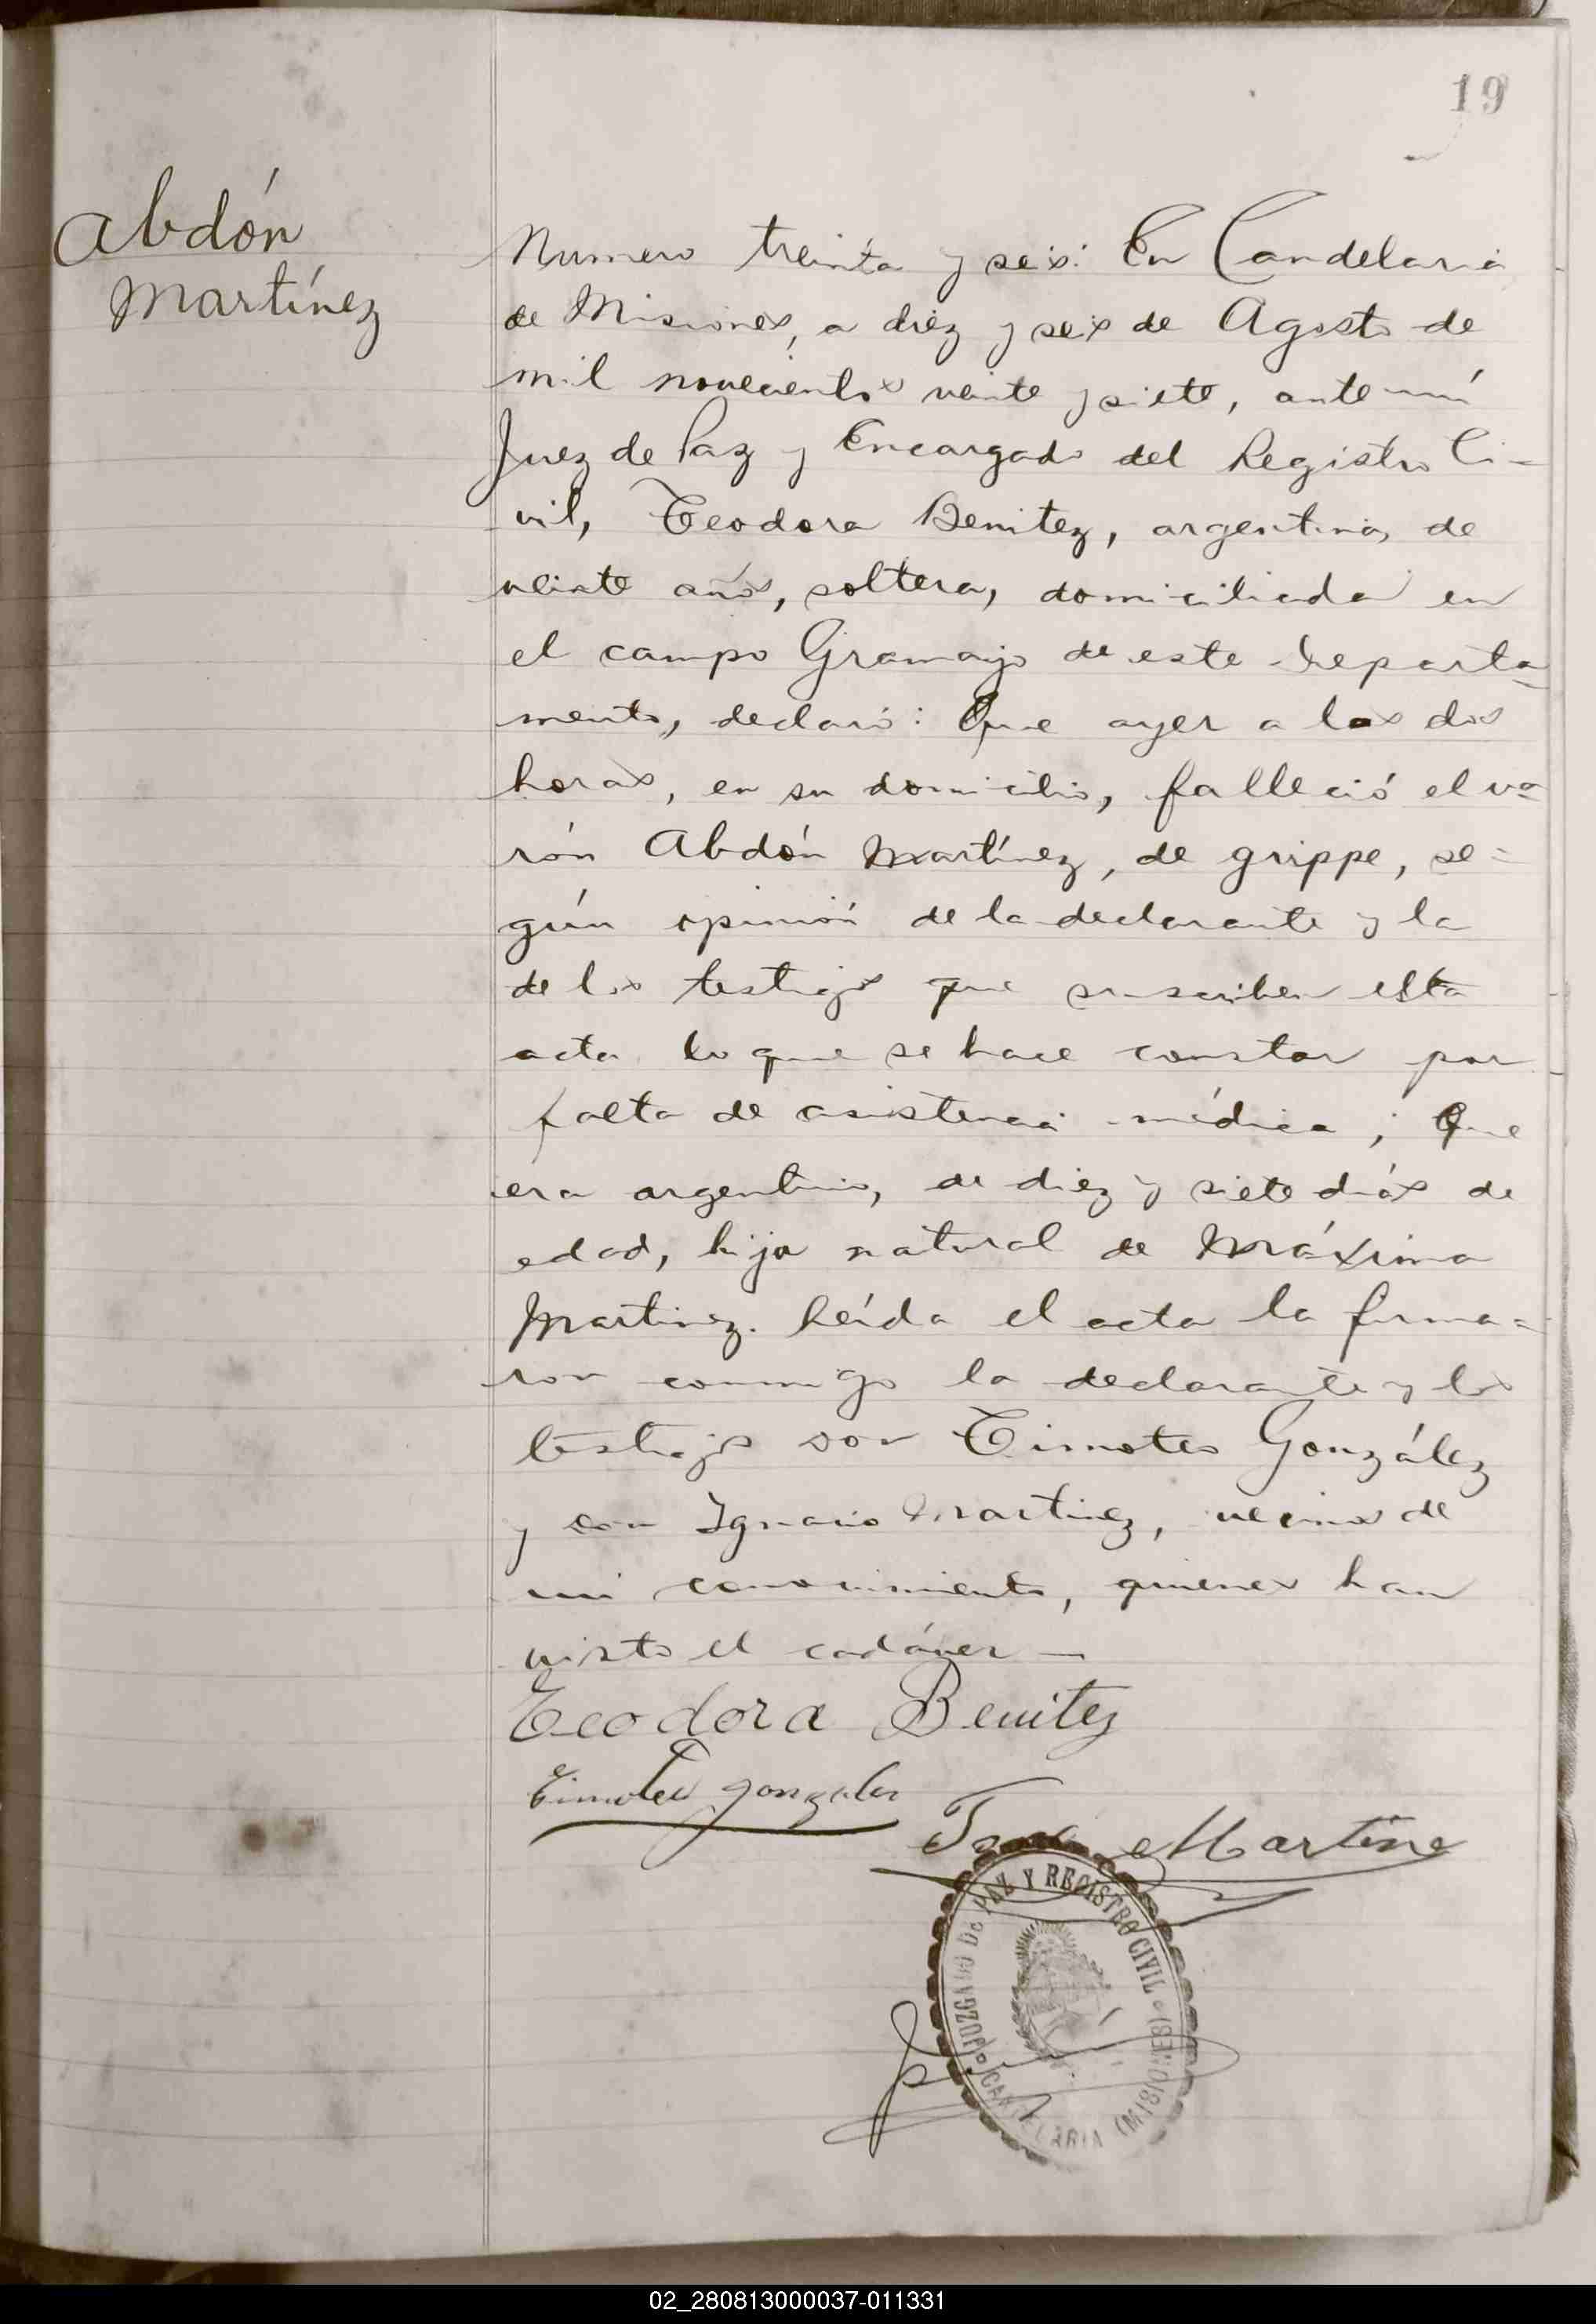 19
Abdón
Martínez
Numero treinta y seis: En Candelaria
de Misiones, a diez y seis de Agosto de
mil novecientos veinte y siete, ante mí
Juez de Paz y Encargado del Registro Ci-
vil, Teodora Benitez, argentina, de
veinte años, soltera, domiciliada en
el campo Gramajo de este departa-
mento, declaró: Que ayer a las dos
horas, en su domicilio, falleció el va-
rón Abdón Martínez, de grippe, se=
gún opinión de la declarante y la
de los testigos que suscriben esta
acta lo que se hace constar por
falta de asistencia médica; Que
era argentino, de diez y siete días de
edad, hijo natural de Máxima
Martinez. Leída el acta la firma=
ron conmigo la declarante y los
testigos don Timoteo González
y don Ignacio Martinez, vecinos de
mi conocimiento, quienes han
visto el cadáver —
Teodora Benitez
Timoteo Gonzalez
Martine
JUZGADO DE PAZ Y REGISTRO CIVIL
CANDELARIA (MISIONES)
02_280813000037-011331